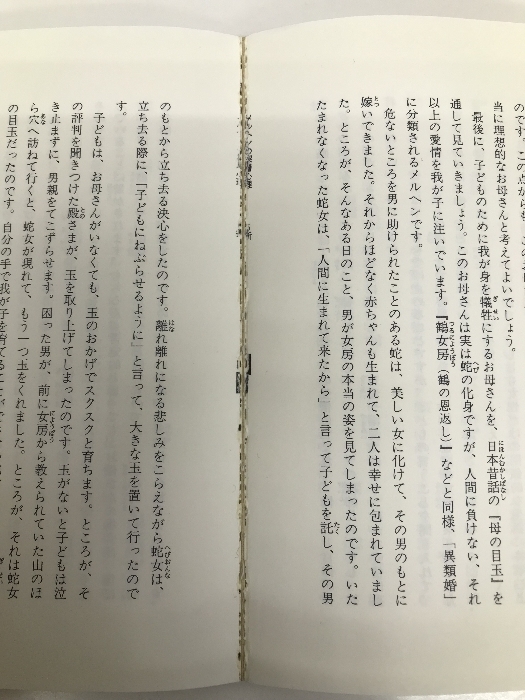 のです。この点から
当に理想的なお母さんと考えてよいでしょう。
最後に、子どものために我が身を犠牲にするお母さんを、日本昔話の『母の目玉』を
通して見ていきましょう。このお母さんは実は蛇の化身ですが、人間に負けない、それ
以上の愛情を我が子に注いでいます。『鶴女房（鶴の恩返し）』などと同様、「異類婚」
に分類されるメルヘンです。
危ないところを男に助けられたことのある蛇は、美しい女に化けて、その男のもとに
嫁いできました。それからほどなく赤ちゃんも生まれて、二人は幸せに包まれていまし
た。ところが、そんなある日のこと、男が女房の本当の姿を見てしまったのです。いた
たまれなくなった蛇女は、「人間に生まれて来たから」と言って子どもを託し、その男
のもとから立ち去る決心をしたのです。離れ離れになる悲しみをこらえながら蛇女は、
立ち去る際に、「子どもにねぶらせるように」と言って、大きな玉を置いて行ったので
す。
子どもは、お母さんがいなくても、玉のおかげでスクスクと育ちます。ところが、そ
の評判を聞きつけた殿さまが、玉を取り上げてしまったのです。玉がないと子どもは泣
き止まずに、男親をてこずらせます。困った男が、前に女房から教えられていた山のほ
ら穴へ訪ねて行くと、蛇女が現れて、もう一つ玉をくれました。ところが、それは蛇女
の目玉だったのです。自分の手で我が子を育てること